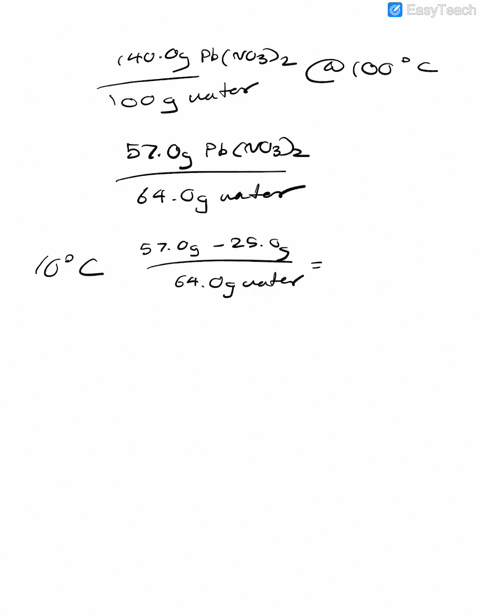 EasyTeach
140.0g Pb(NO3)2
100g water
@ 100°C
57.0g Pb(NO3)2
64.0g water
10°C
57.0g - 25.0g
64.0g water
=